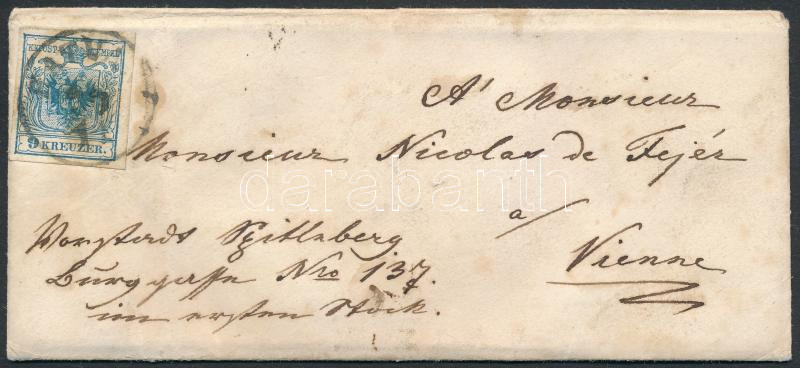 KKPOST-STEMPEL
9 KREUZER.
A' Monsieur
Monsieur Nicolas de Fejér
a/
Vienne
Vorstadt Spittlberg
Burggasse Nro 137.
im ersten Stock.
darabanth